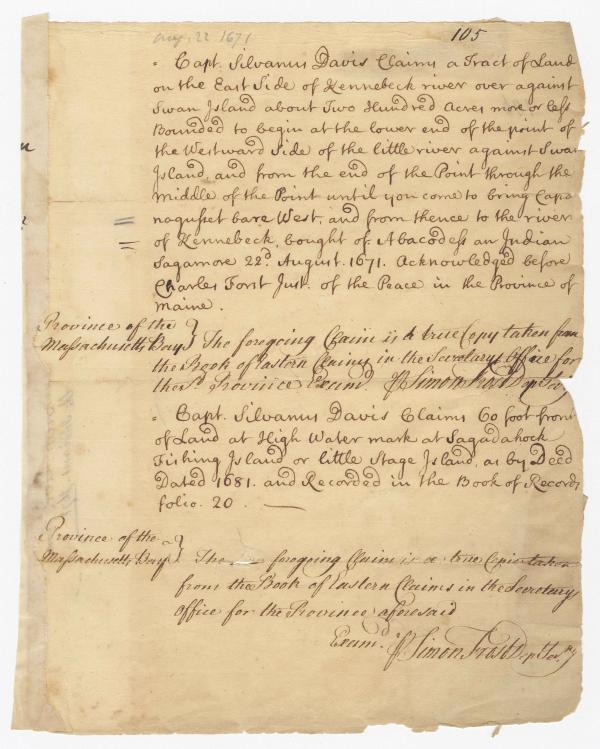 Aug. 22 1671
105
Capt. Silvanus Davis Claims a Tract of Land
on the East Side of Kennebeck river over against
Swan Island about Two Hundred Acres more or less
Bounded to begin at the lower end of the point of
the Westward Side of the little river against Swan
Island, and from the end of the Point through the
Middle of the Point until you come to bring Capa
nagusset bare West, and from thence to the river
of Kennebeck, bought of Abacodess an Indian
Sagamore 22d August. 1671. Acknowledged before
Charles Forst Just. of the Peace in the Province of
Maine.
Province of the
Massachusetts Bay } The foregoing Claim is a true Copy taken from
the Book of Eastern Claims in the Secretary Office for
the sd. Province Examd. Pr Simon Frost Dep Secy
Capt. Silvanus Davis Claims 60 foot front
of Land at High Water mark at Sagadahock
Fishing Island or little Stage Island, as by Deed
Dated 1681. and Recorded in the Book of Records
folio. 20.
Province of the
Massachusetts Bay } The foregoing Claim is a true Copie taken
from the Book of Eastern Claims in the Secretary
Office for the Province aforesaid
Examd. Pr Simon Frost Dept Secry